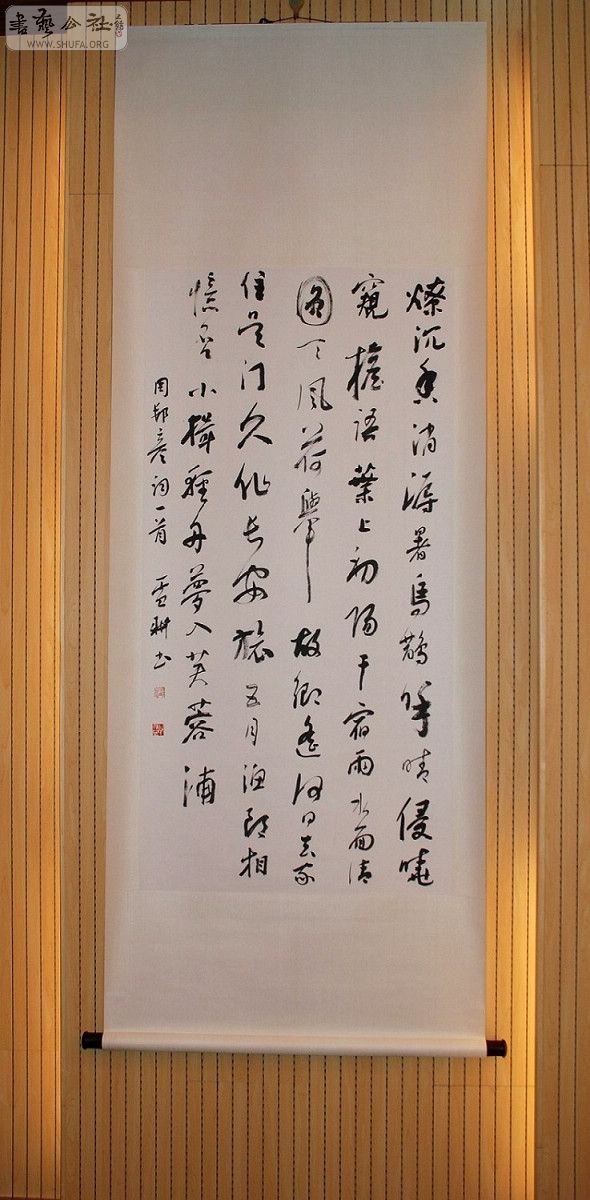 書藝公社
WWW.SHUFA.ORG
燎沉香消溽暑鳥鵲呼晴侵曉
窺檐語葉上初陽干宿雨水面清
圓一一風荷舉故鄉遙何日去家
住吳門久作長安旅五月漁郎相
憶否小楫輕舟夢入芙蓉浦
周邦彥詞一首 耕书